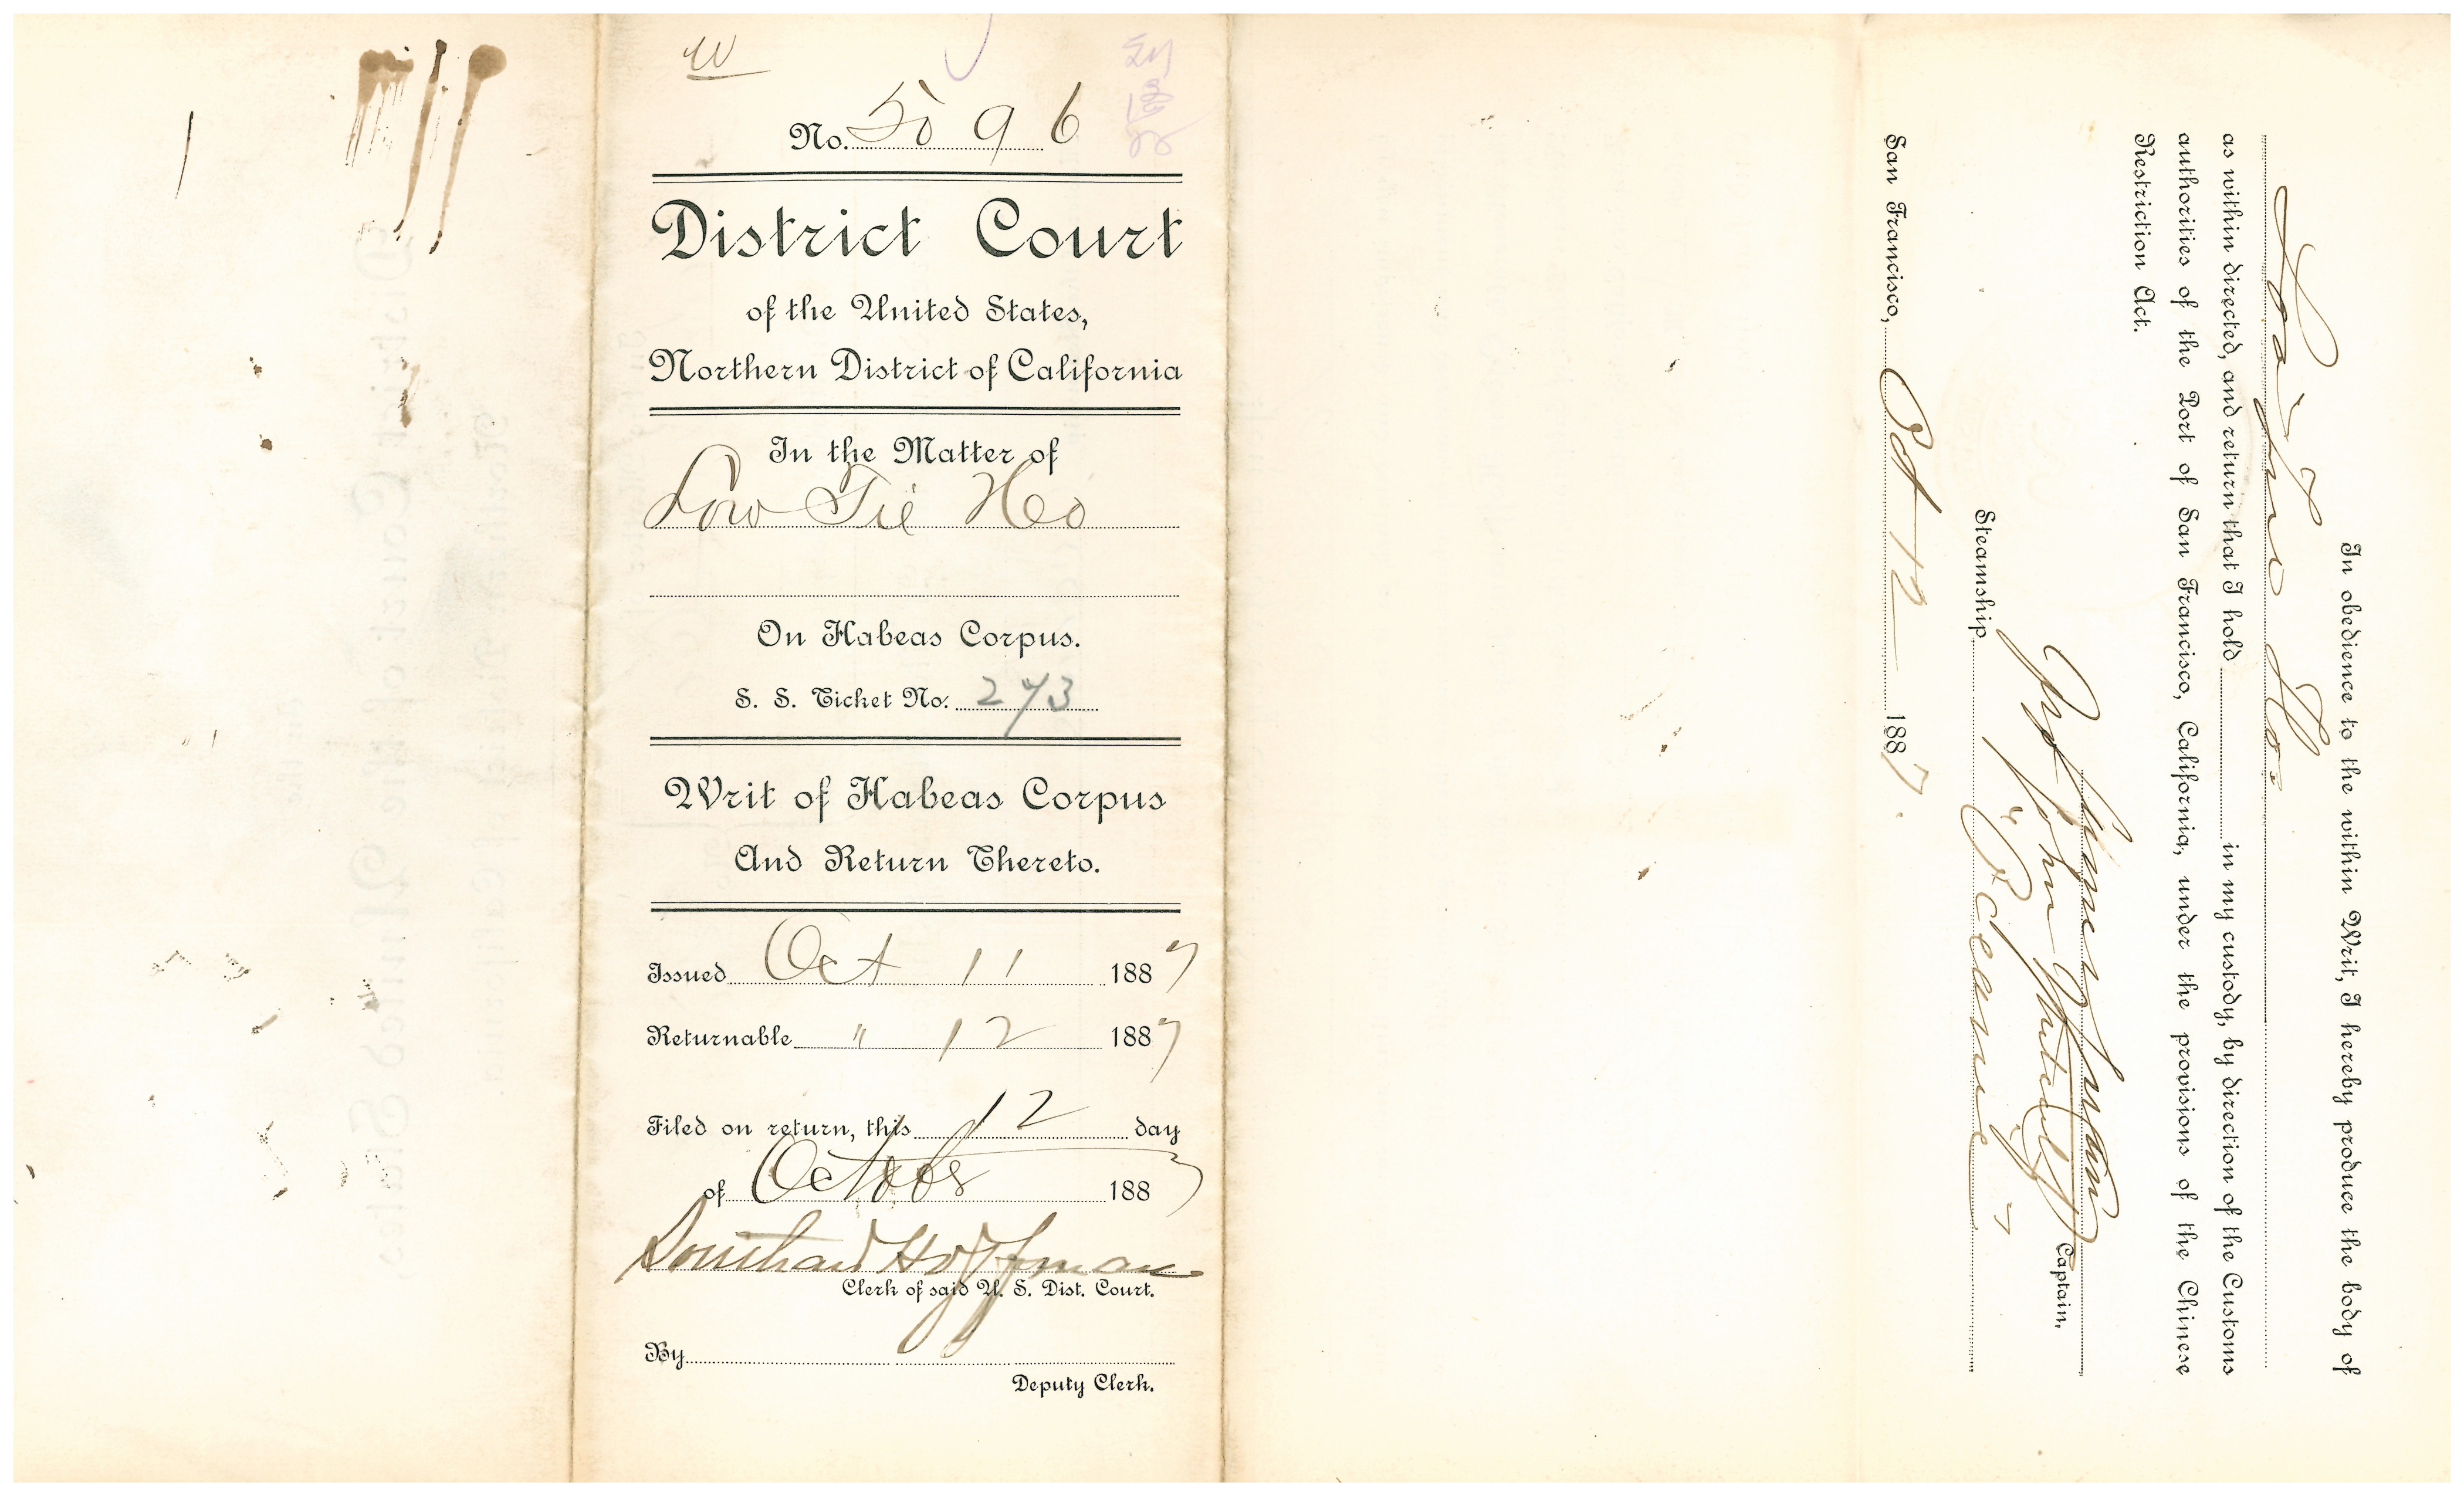 No. 5096
District Court
of the United States,
Northern District of California
In the Matter of
Low Tie Ho
On Habeas Corpus.
S. S. Ticket No. 273
Writ of Habeas Corpus
And Return Thereto.
Issued Oct 11 1887
Returnable " 12 1887
Filed on return, this 12 day
of October 1887
Southard Hoffman
Clerk of said U. S. Dist. Court.
By
Deputy Clerk.
In obedience to the within Writ, I hereby produce the body of
Ho
as within directed, and return that I hold in my custody, by direction of the Customs
authorities of the Port of San Francisco, California, under the provisions of the Chinese
Restriction Act.
John
Captain,
Steamship "Oceanic"
San Francisco, Oct 12 1887.